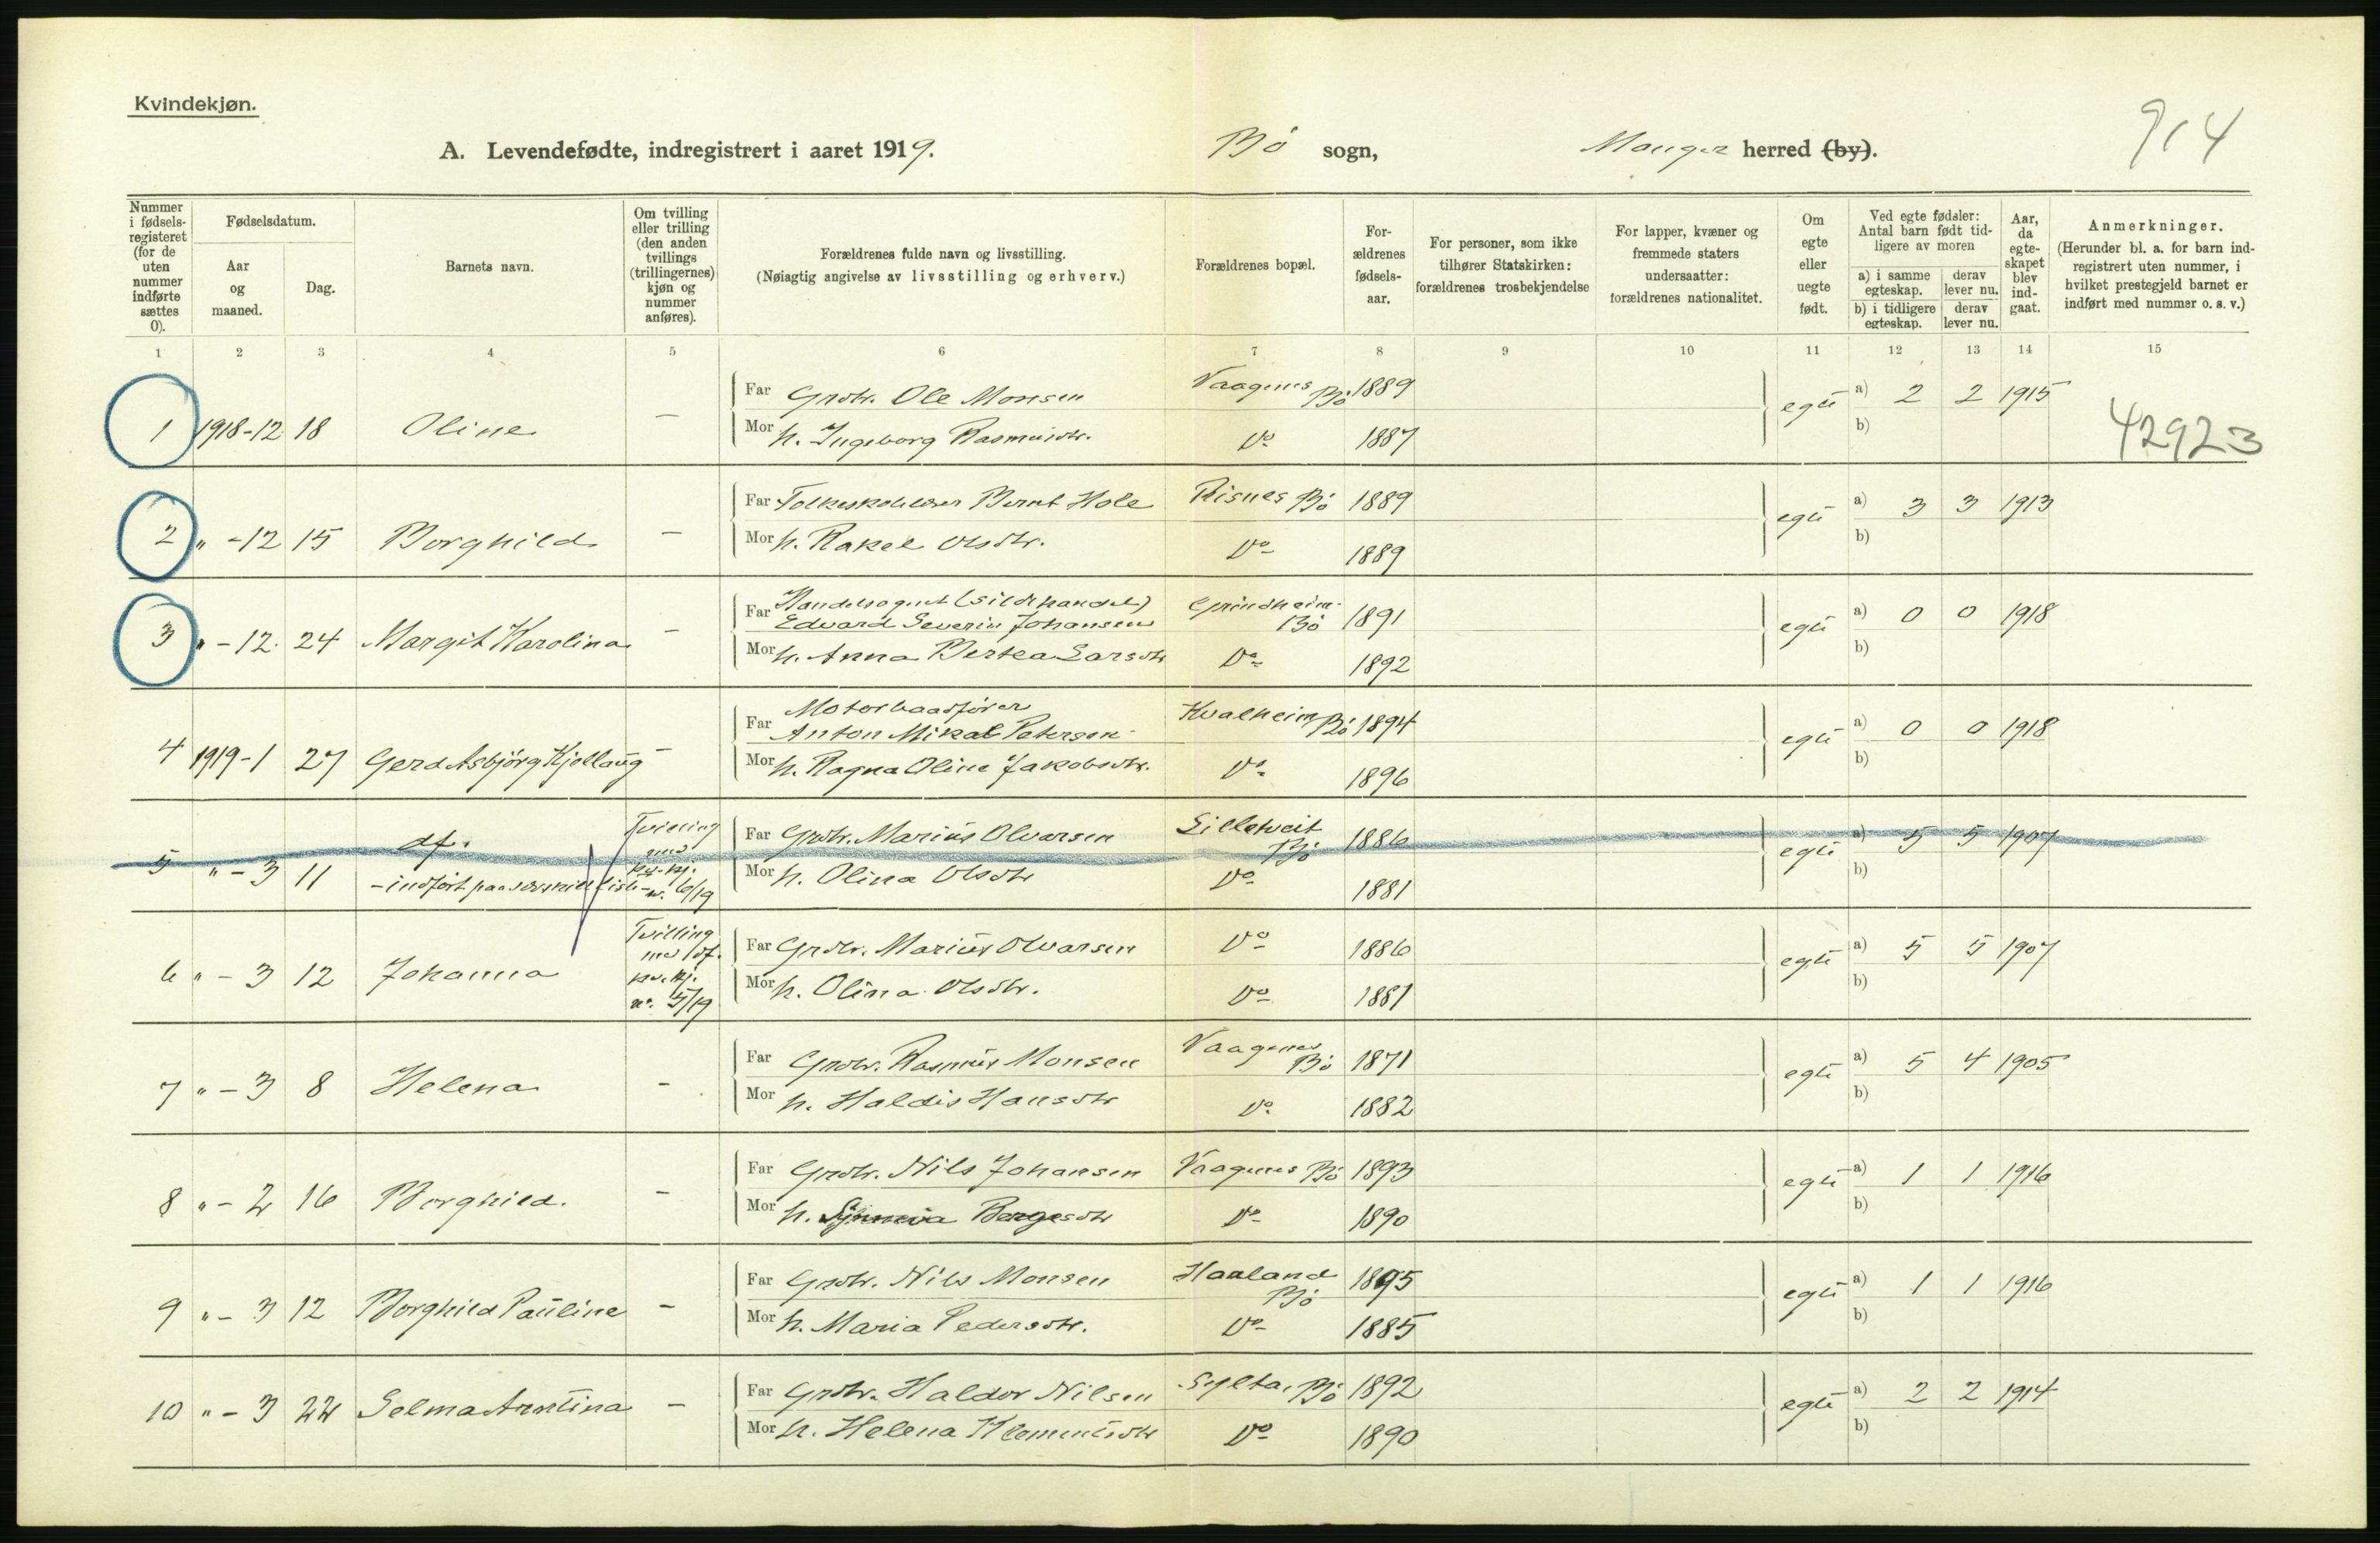 Kvindekjøn.
A. Levendefødte, indregistrert i aaret 1919. Bø sogn, Manger herred (by).
914
Nummer i fødsels-registeret (for de uten nummer indførte sættes 0).
Fødselsdatum.
Aar og maaned.
Dag.
Barnets navn.
Om tvilling eller trilling (den anden tvillings (trillingernes) kjøn og nummer anføres).
Forældrenes fulde navn og livsstilling.
(Nøiagtig angivelse av livsstilling og erhverv.)
Forældrenes bopæl.
For-ældrenes fødsels-aar.
For personer, som ikke tilhører Statskirken: forældrenes trosbekjendelse
For lapper, kvæner og fremmede staters undersaatter: forældrenes nationalitet.
Om egte eller uegte født.
Ved egte fødsler: Antal barn født tid-ligere av moren
a) i samme egteskap. derav lever nu.
b) i tidligere egteskap. derav lever nu.
Aar, da egte-skapet blev ind-gaat.
Anmerkninger.
(Herunder bl. a. for barn ind-registrert uten nummer, i hvilket prestegjeld barnet er indført med nummer o. s. v.)
1 2 3 4 5 6 7 8 9 10 11 12 13 14 15
1 1918-12 18 Oline — Far Grdbr. Ole Monsen Vaagenes Bø 1889 egte a) 2 2 1915
Mor h. Ingeborg Rasmusdtr. Do 1887 b)
42923
2 " -12 15 Borghild — Far Folkeskolelærer Bernt Hole Risnes Bø 1889 egte a) 3 3 1913
Mor h. Rakel Olsdtr. Do 1889 b)
3 " -12. 24 Margit Karolina — Far Handelsagent (sildehandel)
Edvard Severin Johansen Grindheim Bø 1891 egte a) 0 0 1918
Mor h. Anna Bertea Larsdtr Do 1892 b)
4 1919-1 27 Gerd Asbjörg Kjellaug — Far Motorbaadfører
Anton Mikal Petersen Kvalheim Bø 1894 egte a) 0 0 1918
Mor h. Ragna Oline Jakobsdtr. Do 1896 b)
5 " - 3 11 df. Tvilling med kv. kj. nr. 6/19 Far Grdbr. Marius Olvarsen Lilletveit Bø 1886 egte a) 5 5 1907
- indført paa særskilt liste - Mor h. Olina Olsdtr Do 1881 b)
6 " - 3 12 Johanna Tvilling med df. kv. kj. nr. 5/19 Far Grdbr. Marius Olvarsen Do 1886 egte a) 5 5 1907
Mor h. Olina Olsdtr. Do 1881 b)
7 " - 3 8 Helena — Far Grdbr. Rasmus Monsen Vaagenes Bø 1871 egte a) 5 4 1905
Mor h. Haldis Hansdtr Do 1882 b)
8 " - 2 16 Borghild. — Far Grdbr. Nils Johansen Vaagenes Bø 1893 egte a) 1 1 1916
Mor h. Synneva Borgesdtr Do 1890 b)
9 " - 3 12 Borghild Pauline — Far Grdbr. Nils Monsen Haaland Bø 1895 egte a) 1 1 1916
Mor h. Maria Pedersdtr. Do 1885 b)
10 " - 3 22 Selma — Far Grdbr. Haldor Nilsen Sylta, Bø 1892 egte a) 2 2 1914
Mor h. Helena Klementsdtr Do 1890 b)